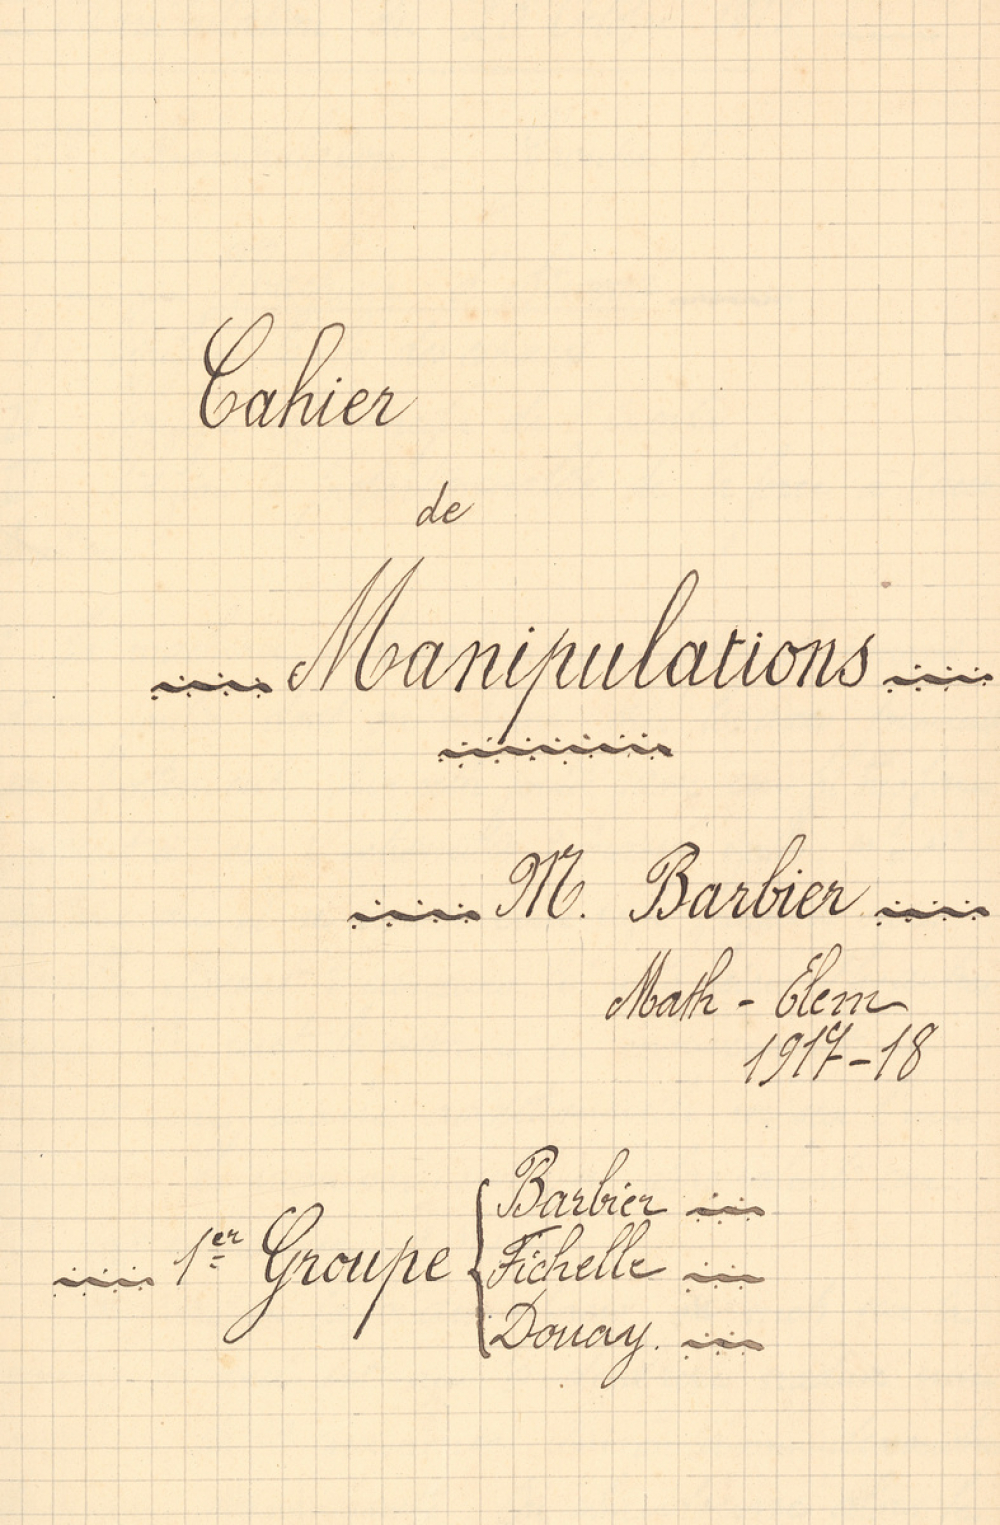 Cahier
de
Manipulations
M. Barbier
Math - Elem
1917-18
1er Groupe { Barbier
Fichelle
Douay.